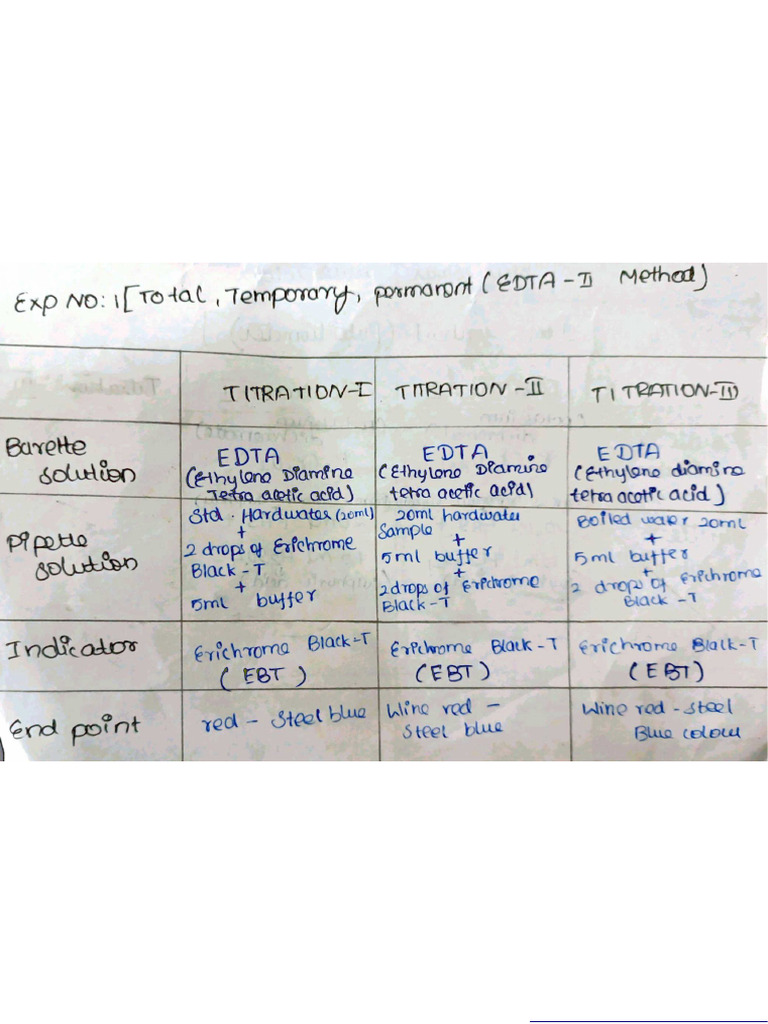 EXP NO: 1 [Total, Temporary, permanent (EDTA - II Method)
TITRATION-I TITRATION-II TITRATION-III
Burette solution
EDTA
(Ethylene Diamine
Tetra acetic acid)
EDTA
(Ethylene Diamine
tetra acetic acid)
EDTA
(Ethylene diamine
tetra acetic acid)
Pipette
solution
Std. Hardwater (20ml)
+
2 drops of Erichrome
Black-T
+
5ml buffer
20ml hardwater
Sample
+
5ml buffer
+
2 drops of Erichrome
Black-T
Boiled water 20ml
+
5ml buffer
+
2 drops of Erichrome
Black-T
Indicator
Erichrome Black-T
(EBT)
Erichrome Black-T
(EBT)
Erichrome Black-T
(EBT)
End point
red - Steel blue
Wine red -
Steel blue
Wine red - steel
Blue colour